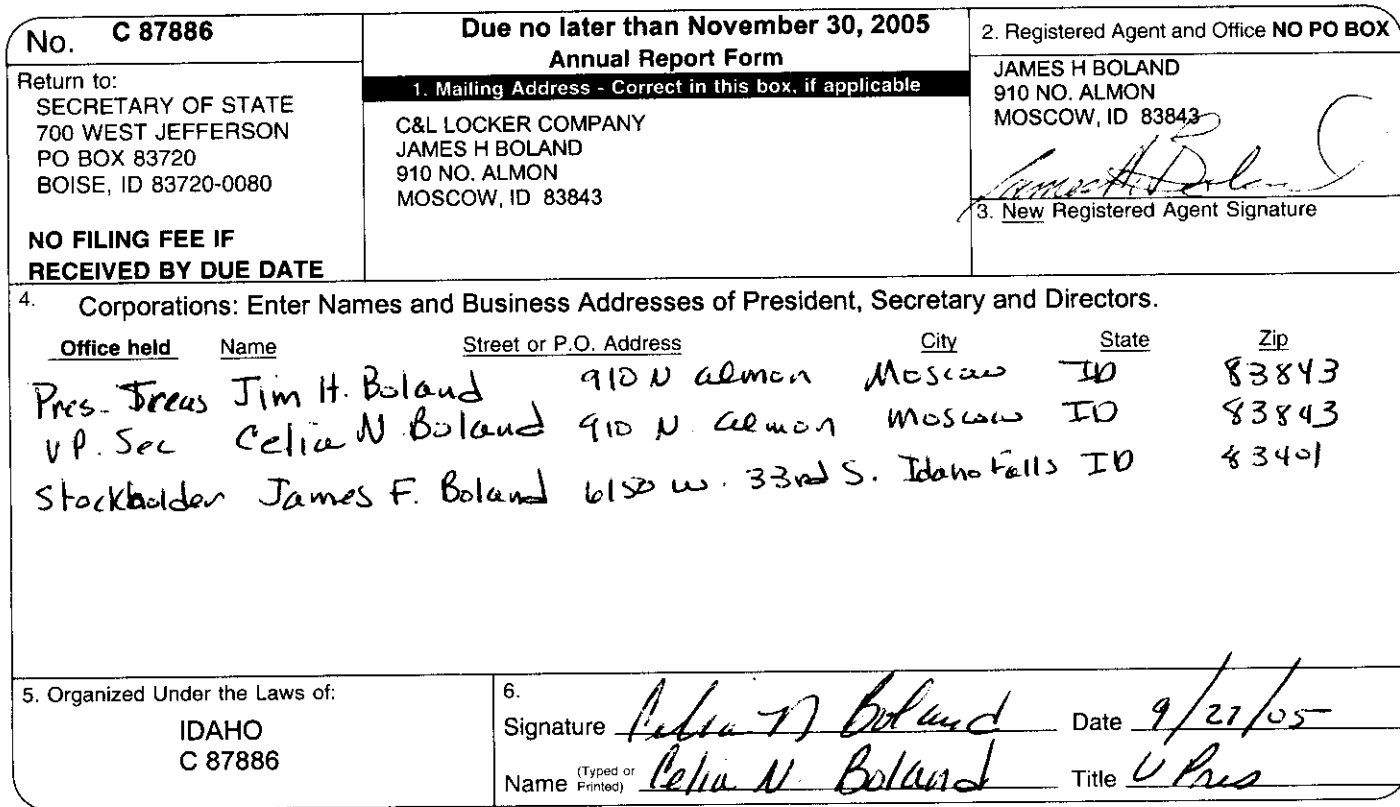 No. C 87886
Return to:
SECRETARY OF STATE
700 WEST JEFFERSON
PO BOX 83720
BOISE, ID 83720-0080
NO FILING FEE IF
RECEIVED BY DUE DATE
Due no later than November 30, 2005
Annual Report Form
1. Mailing Address - Correct in this box, if applicable
C&L LOCKER COMPANY
JAMES H BOLAND
910 NO. ALMON
MOSCOW, ID 83843
2. Registered Agent and Office NO PO BOX
JAMES H BOLAND
910 NO. ALMON
MOSCOW, ID 83843
James H Boland
3. New Registered Agent Signature
4. Corporations: Enter Names and Business Addresses of President, Secretary and Directors.
Office held Name Street or P.O. Address City State Zip
Pres. Treas Jim H. Boland 910 N Almon Moscow ID 83843
V P. Sec Celia N Boland 910 N. Almon Moscow ID 83843
Stockholder James F. Boland 6150 W. 33rd S. Idaho Falls ID 83401
5. Organized Under the Laws of:
IDAHO
C 87886
6.
Signature Celia N Boland Date 9/27/05
Name (Typed or Printed) Celia N. Boland Title V Pres